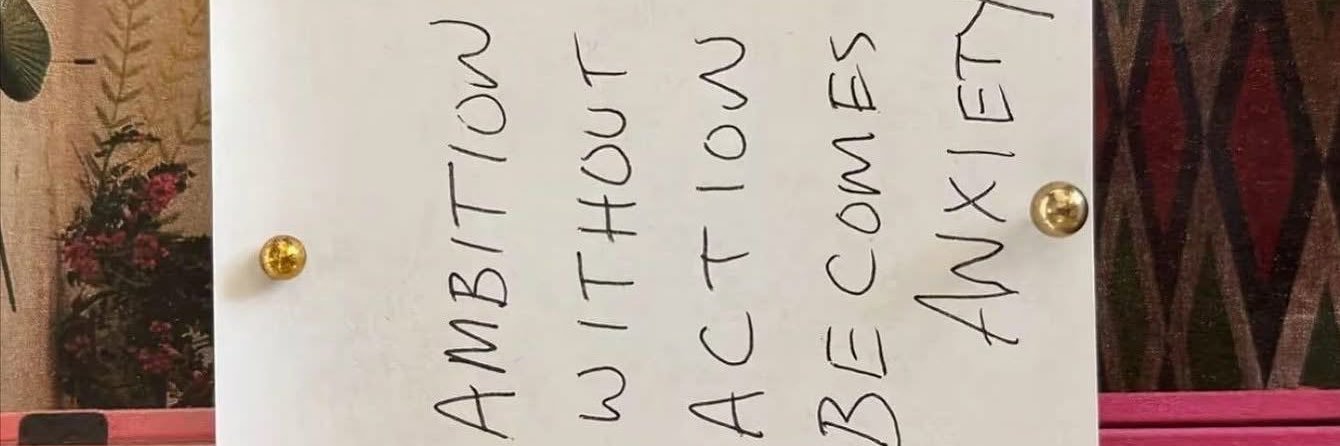 AMBITION
WITHOUT
ACTION
BECOMES
ANXIETY